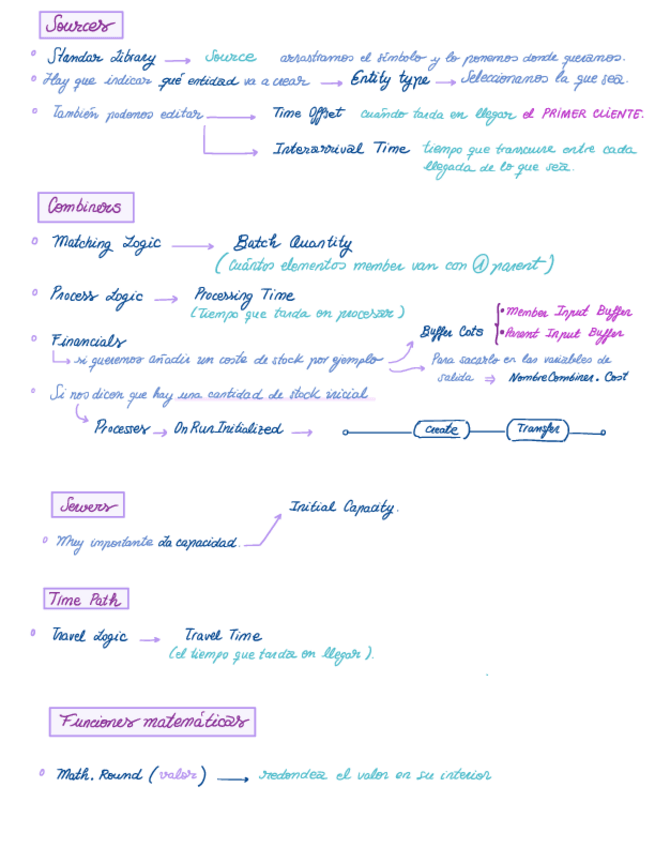 Sources
Standar Library → Source arrastramos el símbolo y lo ponemos donde queramos.
Hay que indicar qué entidad va a crear → Entity type → Seleccionamos la que sea.
También podemos editar → Time Offset cuándo tarda en llegar el PRIMER CLIENTE.
Interarrival Time tiempo que transcurre entre cada
llegada de lo que sea.
Combiners
Matching Logic → Batch Quantity
(Cuántos elementos member van con 1 parent)
Process Logic → Processing Time
(Tiempo que tarda en procesar)
Financials
si queremos añadir un coste de stock por ejemplo
Buffer Cots
• Member Input Buffer
• Parent Input Buffer
Para sacarlo en las variables de
salida ⇒ NombreCombiner.Cost
Si nos dicen que hay una cantidad de stock inicial
Processes → OnRunInitialized → Create Transfer
Servers
Initial Capacity.
Muy importante La capacidad.
Time Path
Travel Logic → Travel Time
(el tiempo que tarda en llegar).
Funciones matemáticas
Math.Round (valor) → redondea el valor en su interior